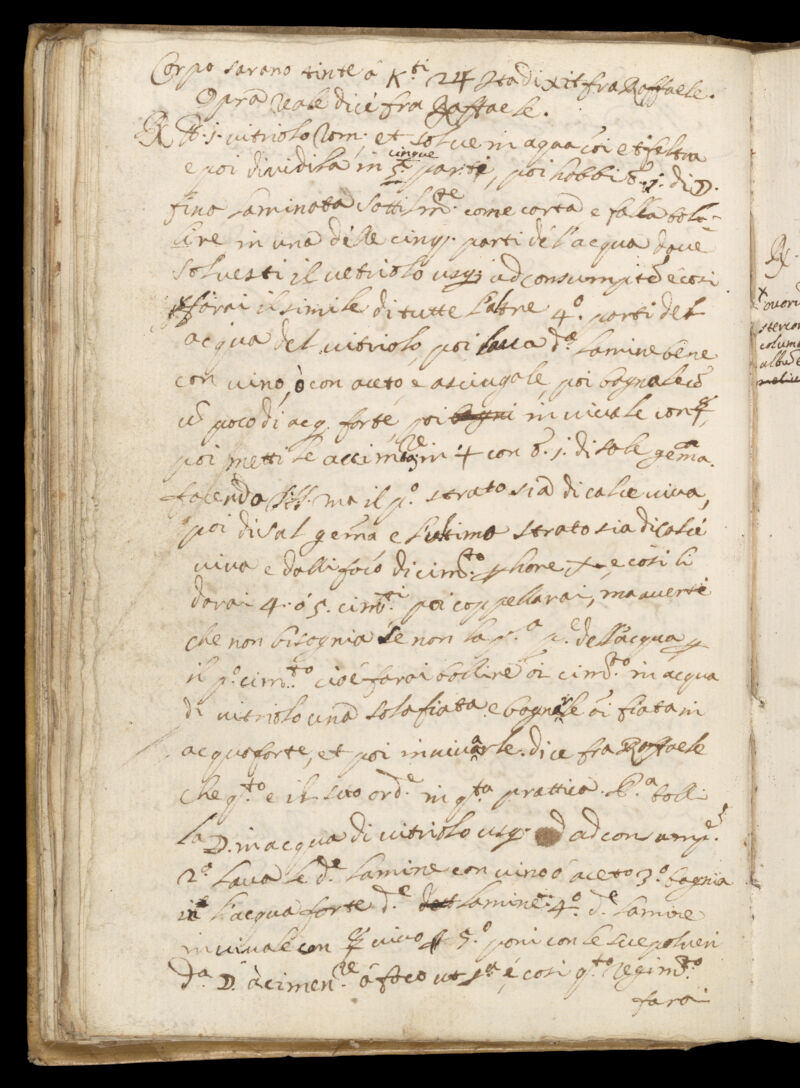 Corpo sarano tinte á K.ti 24 Ita dixit fra Raffaele.
Opra reale dice fra Raffaele.
℞ ℔. j. vitriolo Rom: et solve in aqua cõi et feltra
e poi dividila in 5.e cinque parti, poi habbi ℥. j. di D.
fino laminata sottilm.te come carta e falla bol-
lire in una delle cinq. parti de l'acqua dove
solvesti il vetriolo usq; ad consumptẽ e cosi
farai il simile di tutte l'altre 4.o parti del
acqua del vitriolo, poi lava d.e lamine bene
con vino, ò con aceto e asciugale, poi bagnale cõ
ũ poco di acq. forte, poi invivale con ☿,
poi metti le a cim.re in 4 con ℥. j. di sale gem.a
facendo SSS. ma il p.o strato sia di calce viva,
poi di sal gema e l'ultimo strato sia di calce
viva e dalli foco di cim.to p hore e cosi li
darai 4. ó 5. cim.ti poi coppellarai, ma averti
che non bisognia se non la p.a p.e dell'acqua p
il p.o cim.to cioé farai bollire õi cim.to in acqua
di vitriolo una sola fiata e bagnale õi fiata in
acqua forte, et poi invivarle. dice fra Raffaele
che q.to e il suo ord.e in q.ta prattica. P.a bolli
la D. in acqua di vitriolo usq. ad consump.e
2.o lava le d.e lamine con vino ó aceto 3.o bagnia
in l'acqua forte d.e lamine. 4.o d.e lamine
invivale con ☿ vivo 5.o poni con le sue polveri
D.a D. à cimen.re á foco ut s.a, é cosi q.to regim.to
farai
℞.
ovori
stercor
columb